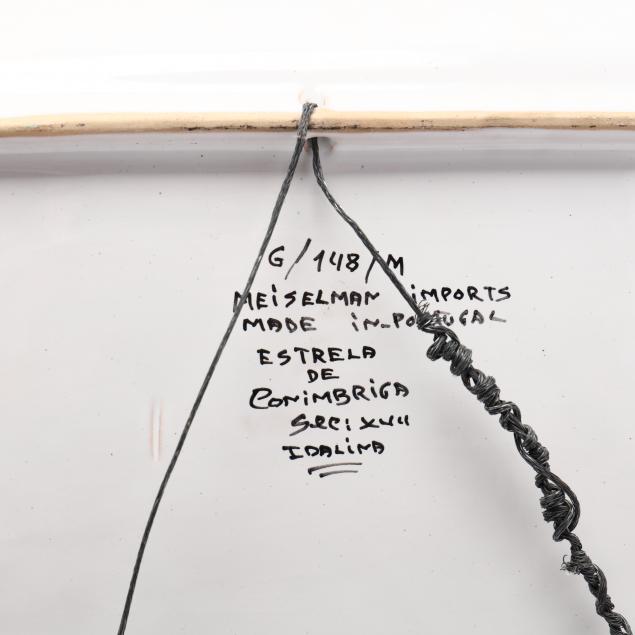 G/148/M
MEISELMAN IMPORTS
MADE IN-PORTUGAL
ESTRELA
DE
CONIMBRIGA
SECI XVII
IDALINA